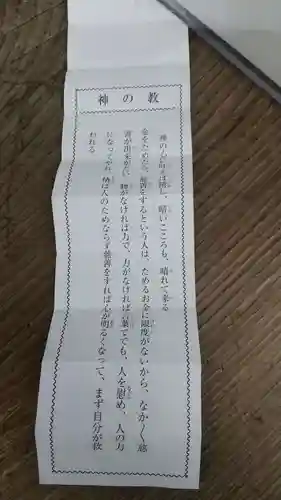 神の教
神の心に訴えば開し、暗いこころも、晴れて來る
金をためたら、慈善をするという人は、ためるお金に限度がないから、なか〱慈
善が出來がたい、物がなければ力で、力がなければ言葉ででも、人を慰め、人の力
になってやれ、人のためならず慈善をすれば心が明るくなって、まず自分が救
われる